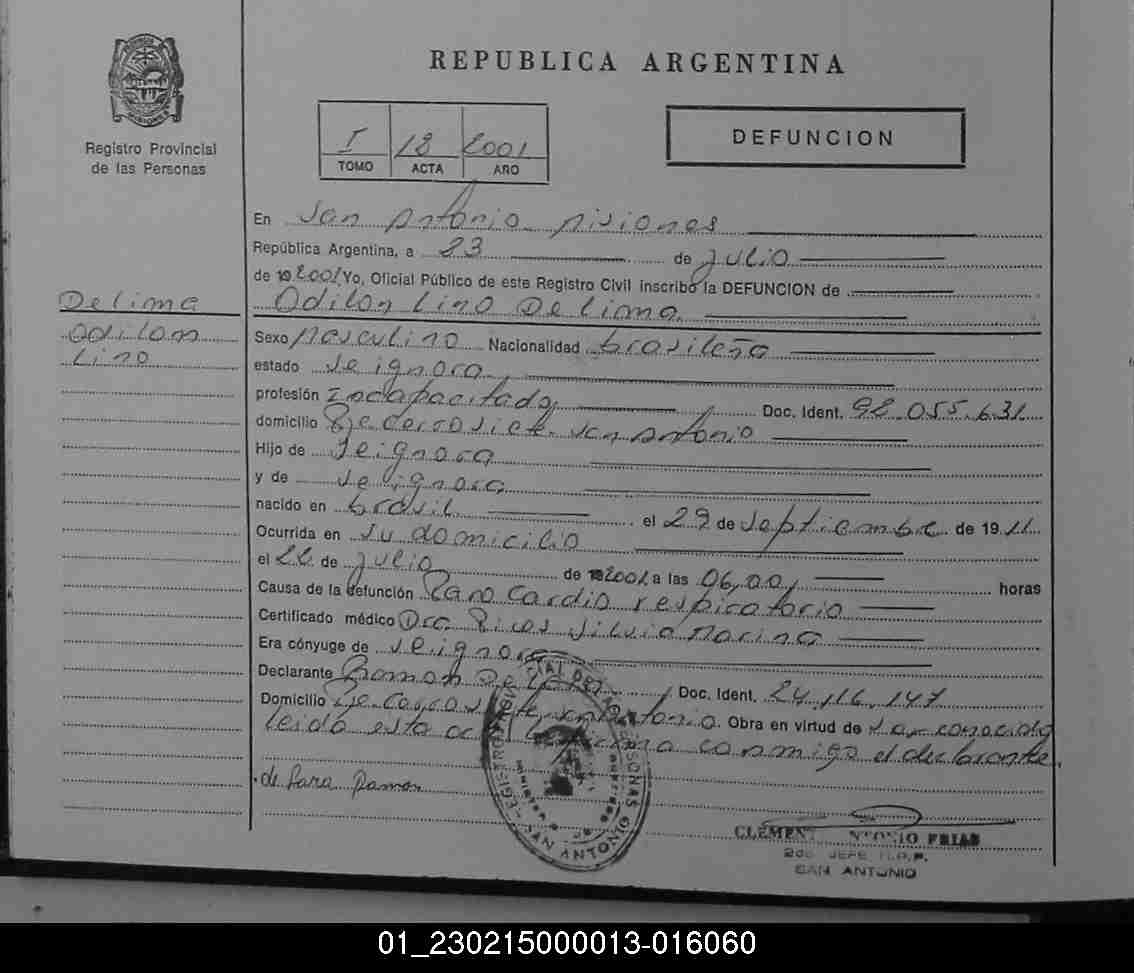 REPUBLICA ARGENTINA
Registro Provincial
de las Personas
I 18 2001
TOMO ACTA AÑO
DEFUNCION
En San Antonio Misiones
República Argentina, a 23 de Julio
de 2001 Yo, Oficial Público de este Registro Civil inscribo la DEFUNCION de
Odilon Lino De Lima
De Lima
Odilon
Lino
Sexo Masculino Nacionalidad brasileña
estado Se ignora
profesión Incapacitado Doc. Ident. 92.055.631
domicilio San Antonio
Hijo de Se ignora
y de Se ignora
nacido en brasil el 29 de Septiembre de 1911
Ocurrida en Su domicilio
el 22 de Julio de 2001 a las 06,00 horas
Causa de la defunción Paro Cardio respiratorio
Certificado médico Dra Silvia Marina
Era cónyuge de Se ignora
Declarante Ramon De Doc. Ident. 24.116.147
Domicilio Antonio. Obra en virtud de Ser conocido
leida esta conmigo el declarante
de Lara Ramon
SAN ANTONIO
CLEMENT NTONIO FRIAS
2do JEFE R.P.P.
SAN ANTONIO
01_230215000013-016060